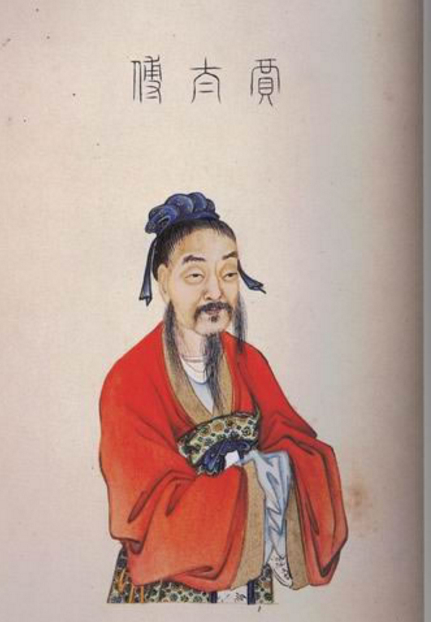 賈太傅